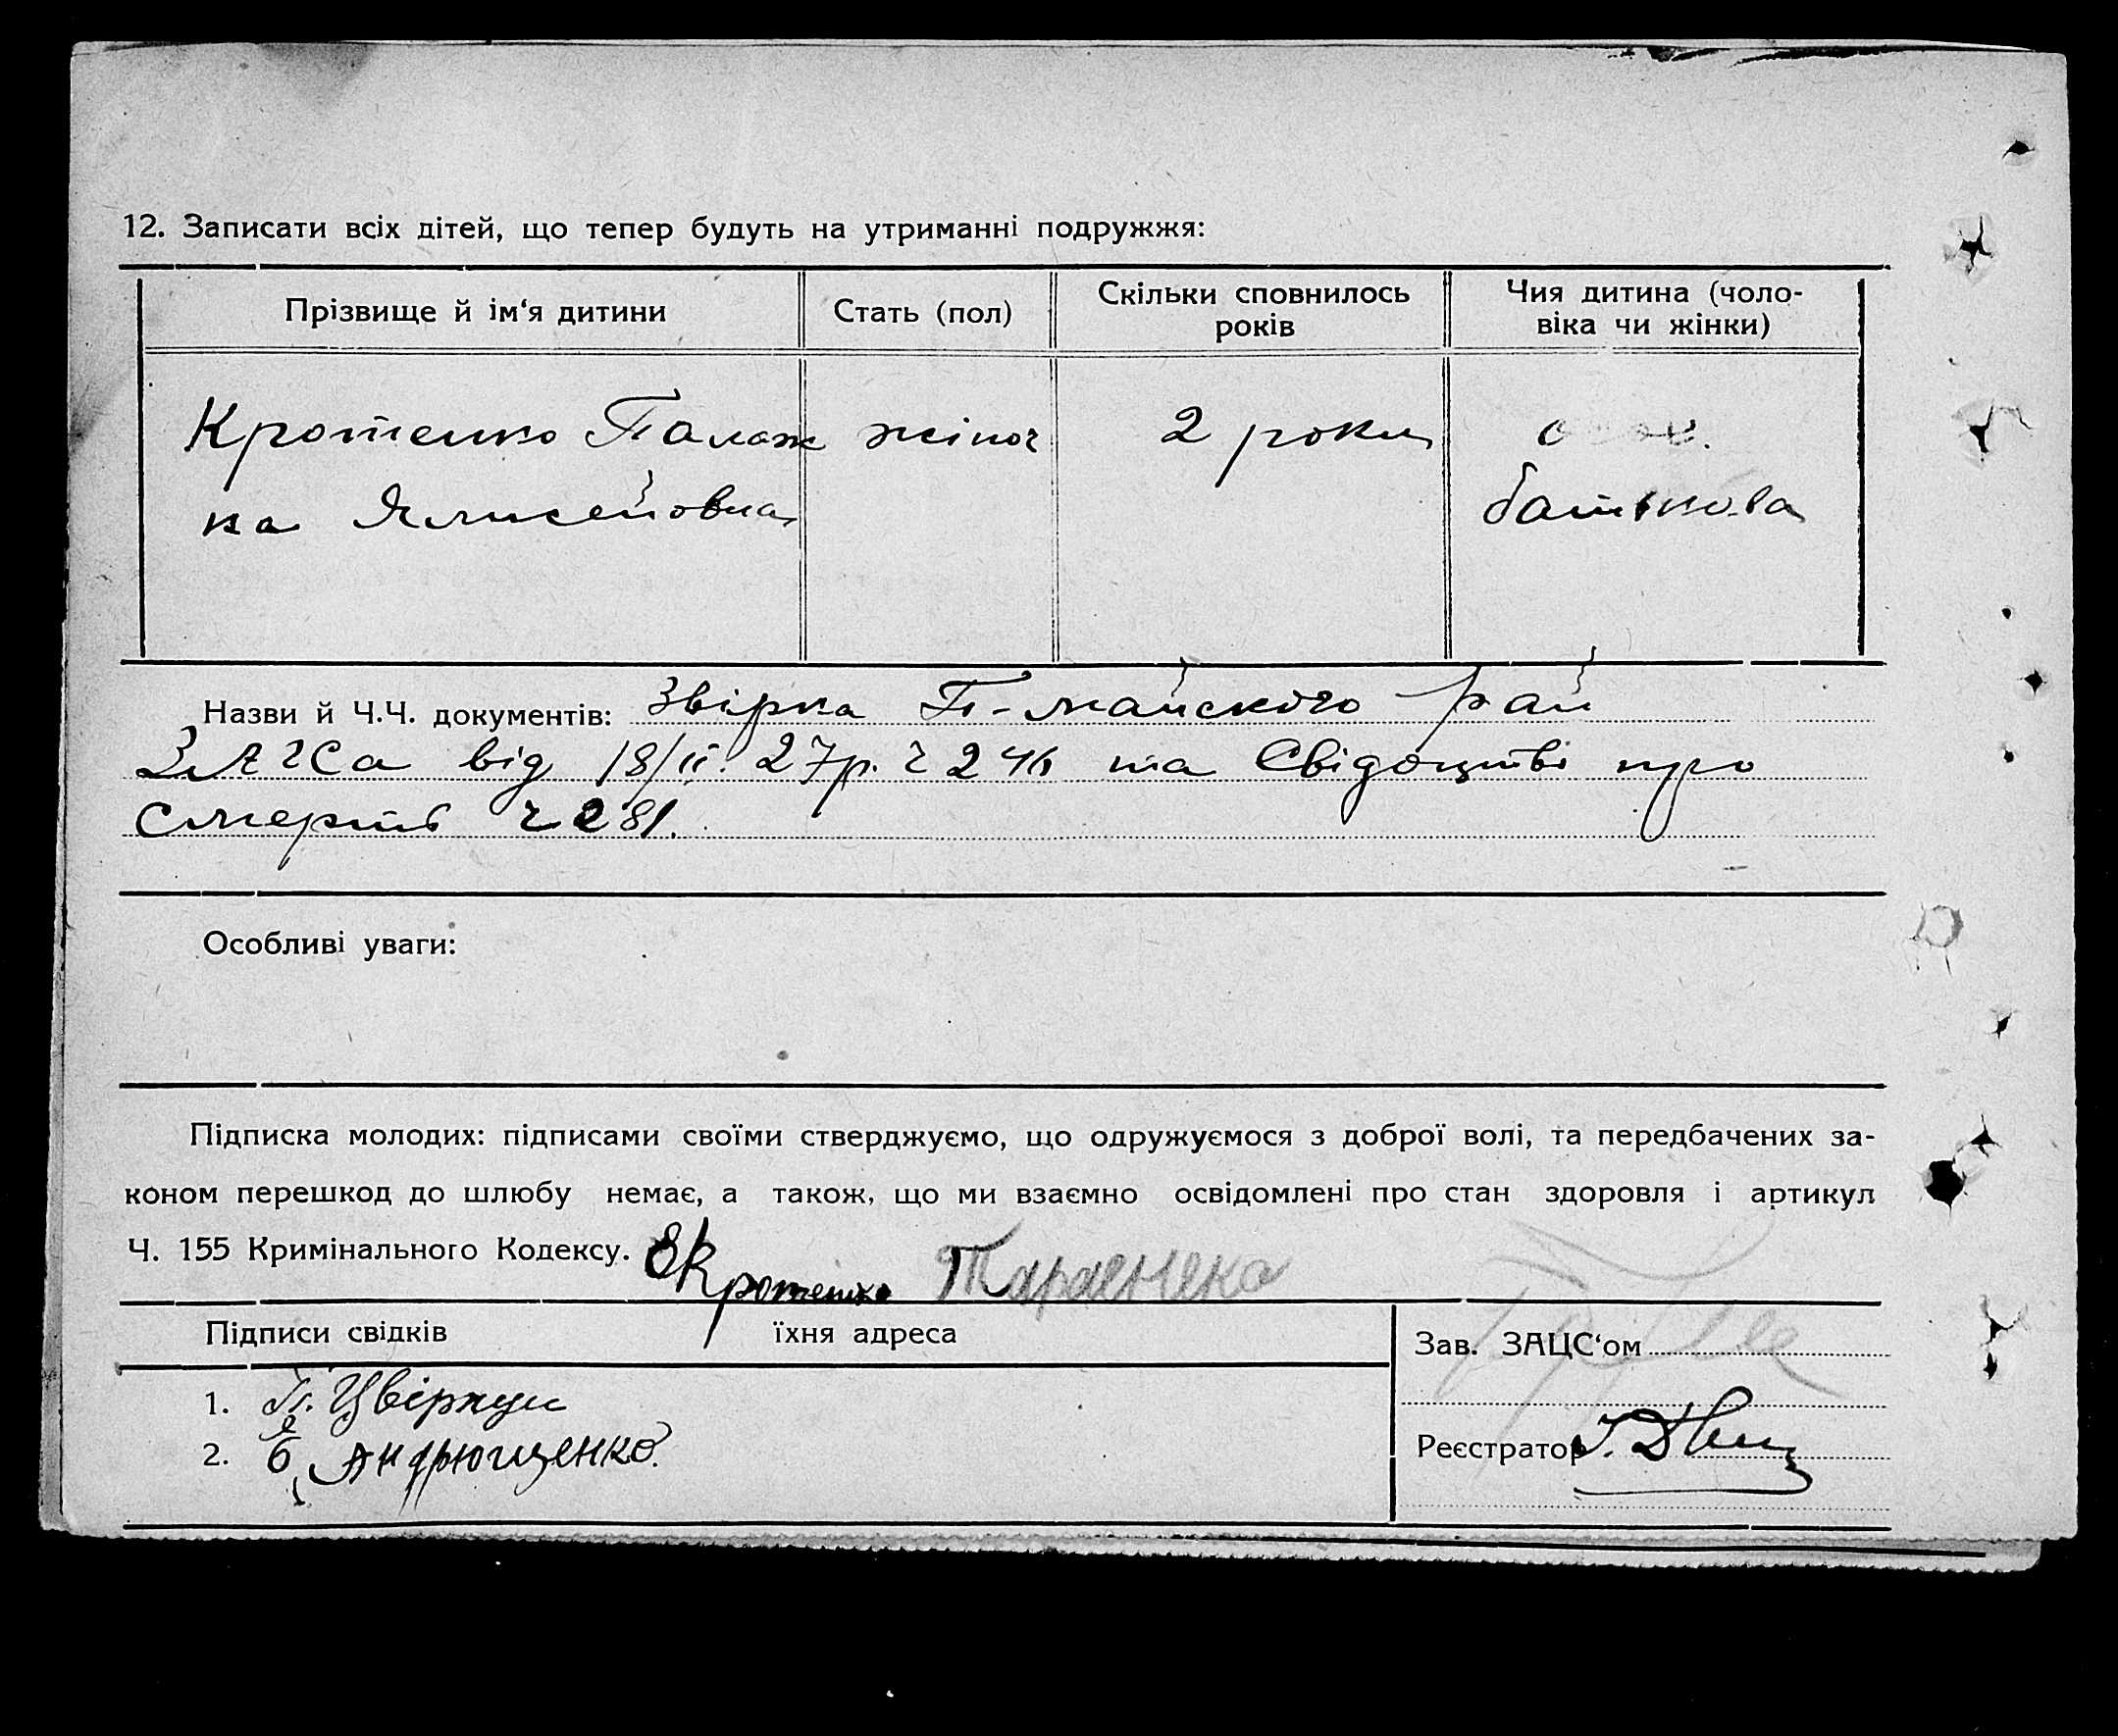 12. Записати всіх дітей, що тепер будуть на утриманні подружжя:
Прізвище й ім‘я дитини Стать (пол) Скільки сповнилось років Чия дитина (чоловіка чи жінки)
Кротенко Палаж жіноч 2 роки
ка Ялисейовна батькова
Назви й Ч.Ч. документів: Звірка П-майского рай
ЗАГСа від 18/II. 27р. ч 246 та Свідоцтві про
смерть ч 281.
Особливі уваги:
Підписка молодих: підписами своїми стверджуємо, що одружуємося з доброї волі, та передбачених за-
коном перешкод до шлюбу немає, а також, що ми взаємно освідомлені про стан здоровля і артикул
Ч. 155 Кримінального Кодексу. ЄКротенко
Підписи свідків їхня адреса
Зав. ЗАЦС‘ом
1. П. Цвіркун
2. Андрющенко.
Реєстратор